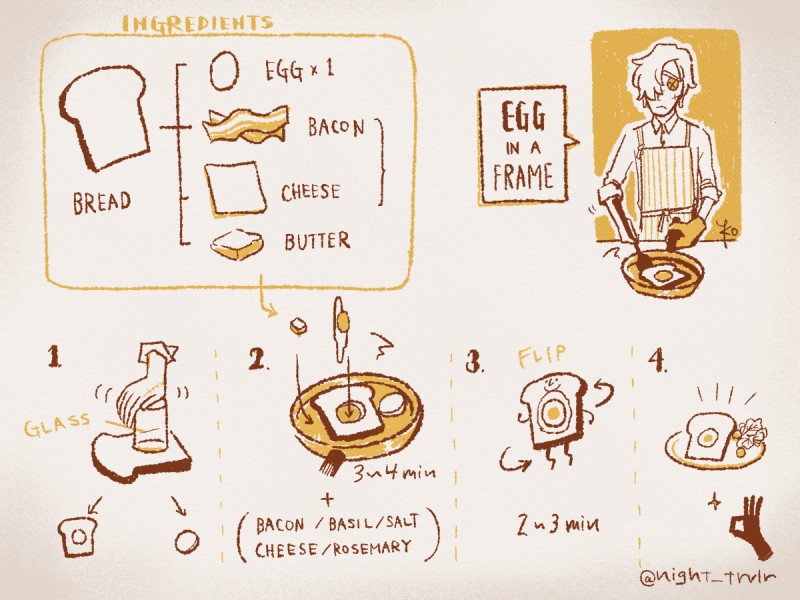 INGREDIENTS
BREAD
EGG x 1
BACON
CHEESE
BUTTER
EGG
IN A
FRAME
1
GLASS
2.
3~4 min
+
(BACON / BASIL/SALT
CHEESE/ROSEMARY)
3.
FLIP
2~3 min
4.
@night_trvlr